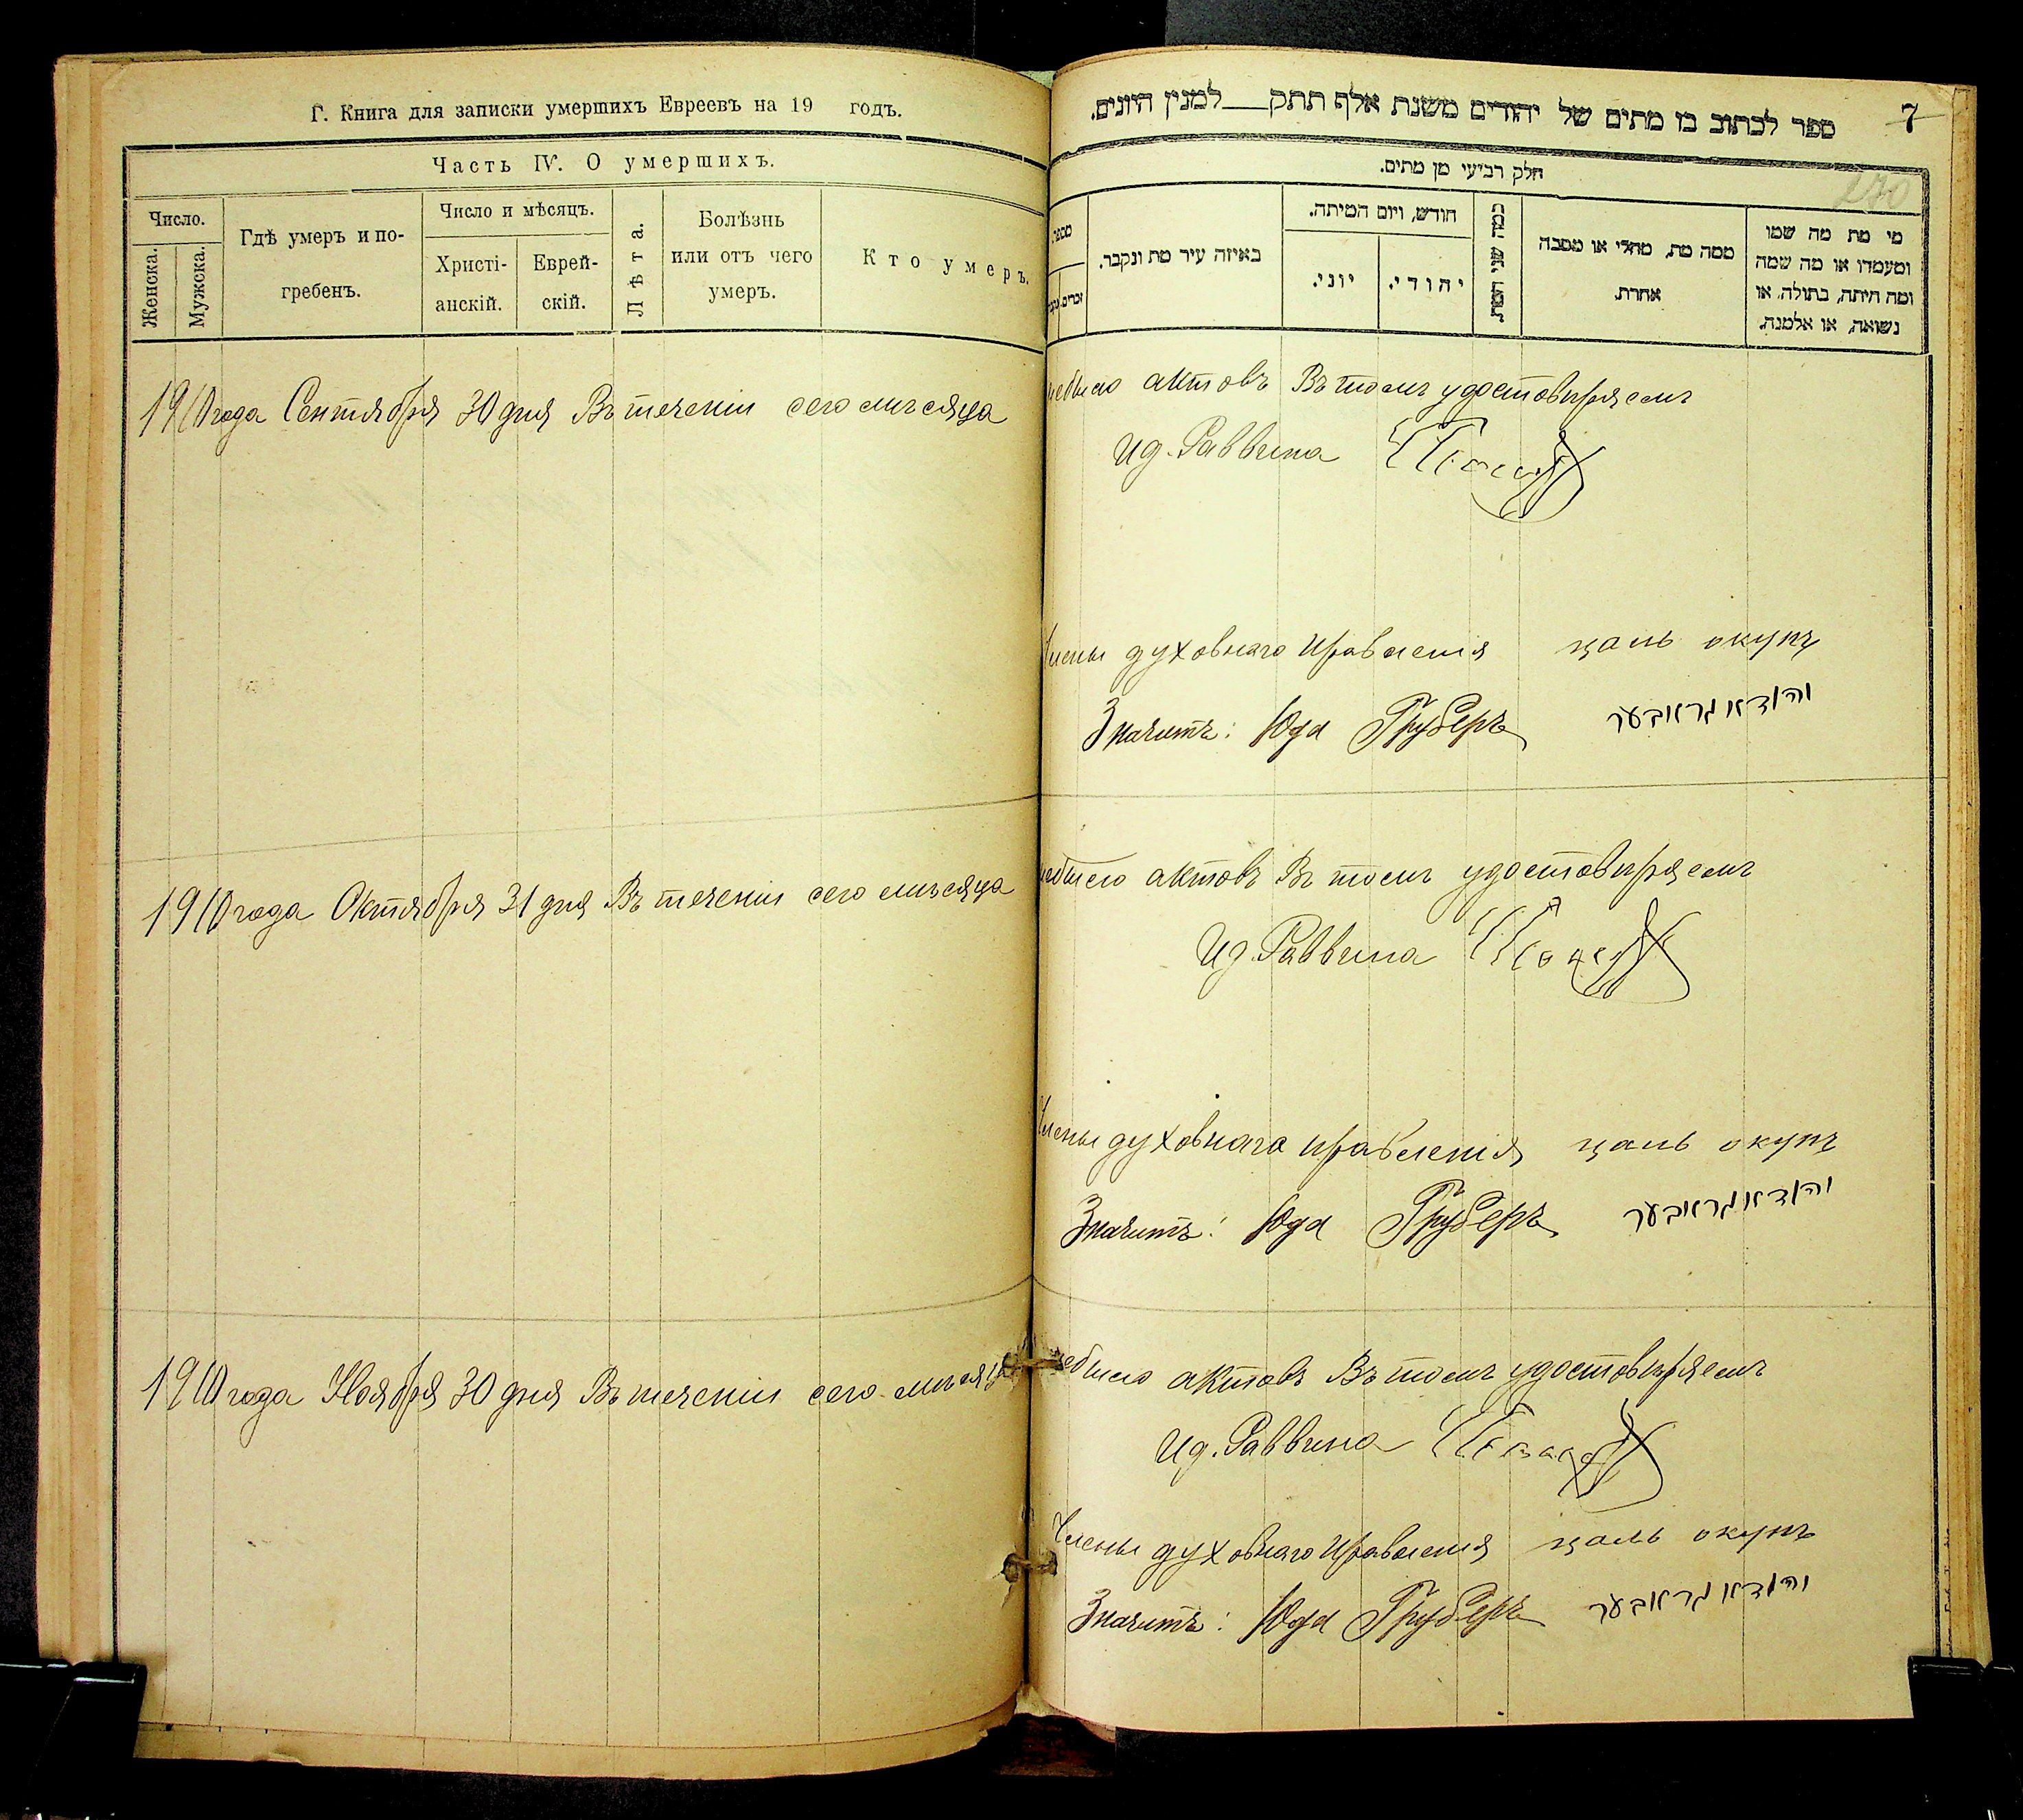 Г. Книга для записки умершихъ Евреевъ на 19 годъ.
Часть IV. О умершихъ.
Число.
Женска.
Мужска.
Гдѣ умеръ и по-
гребенъ.
Число и мѣсяцъ.
Христі-
анскій.
Еврей-
скій.
Лѣта.
Болѣзнь
или отъ чего
умеръ.
Кто умеръ.
ספר לכתוב בו מתים של יהודים משנת אלף תתק למנין היונים.
7
270
חלק רביעי מן מתים.
מספר
זכרים
באיזה עיר מת ונקבר.
חודש, ויום המיתה.
יוני.
יהודי.
כמה שני המת
ממה מת, מחלי או מסבה
אחרת.
מי מת מה שמו
ומעמדו או מה שמה
ומה היתה, בתולה, או
נשואה, או אלמנה.
1910 года Сентября 30 дня Въ теченіи сего мѣсяца небыло актовъ Въ томъ удостовѣряемъ
И д. Раввина
Члены духовнаго правленія цаль окупъ
Значитъ: Юда Груберъ יהודא גראבער
1910 года Октября 31 дня Въ теченіи сего мѣсяца небыло актовъ Въ томъ удостовѣряемъ
И д. Раввина
Члены духовнаго правленія цаль окупъ
Значитъ: Юда Груберъ יהודא גראבער
1910 года Ноября 30 дня Въ теченіи сего мѣсяца небыло актовъ Въ томъ удостовѣряемъ
И д. Раввина
Члены духовнаго правленія цаль окупъ
Значитъ: Юда Груберъ יהודא גראבער